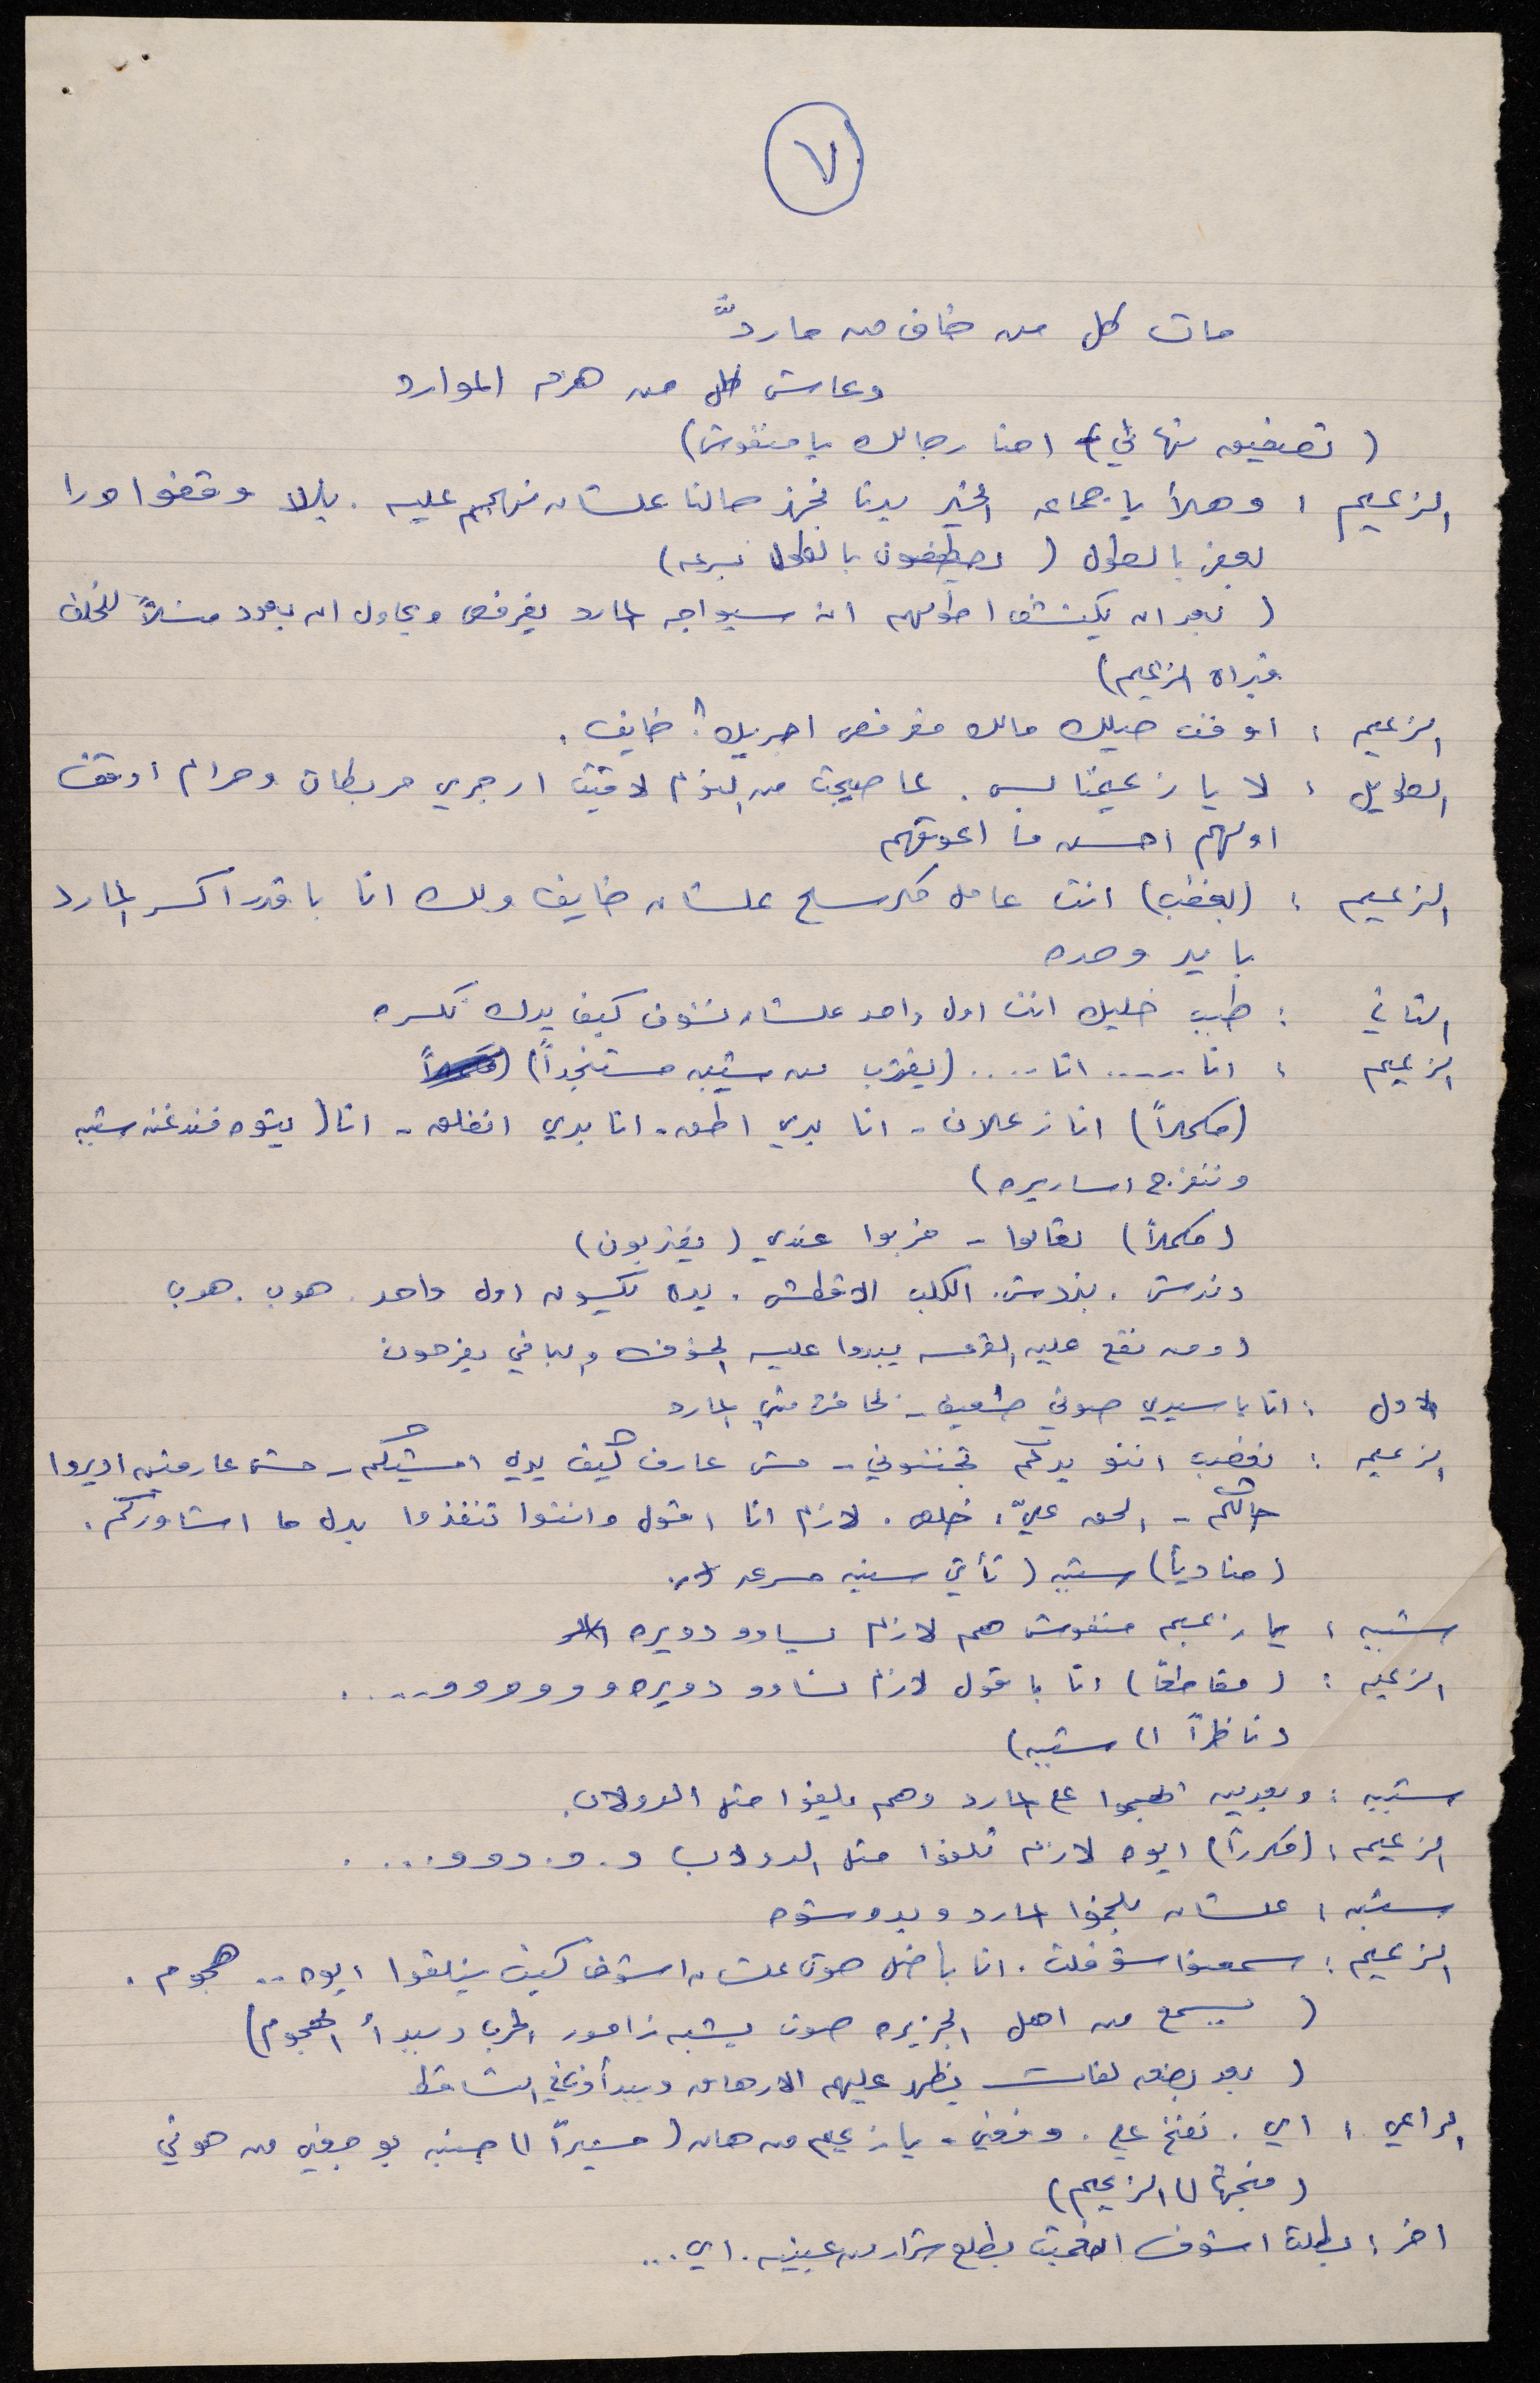 ٧
مات كل من خاف من ماردّ
وعاش كل من هزم الموارد
( تصفيق نهائي) احنا رجالك يا منقوش)
الزعيم : وهلأ يا جماعه الخير بدنا نجهز حالنا علشان نهجم عليه . يللا وقفوا ورا
بعض بالطول ( يصطفون بالطول بسرعه)
( بعد ان يكتشف اطولهم انه سيواجه المارد يقرفص ويحاول ان يعود متسللاً للخلف
فيراه الزعيم)
الزعيم : اوقف حيلك مالك مقرفص اجريك؟ خايف .
الطويل : لا يا زعيمنا بس . عا صحيت من النوم لاقيت اجري مربطات وحرام اوقف
اولهم احسن ما اعوقهم
الزعيم : (بغضب) انت عامل مكرسح علشان خايف ولك انا باقدر اكسر المارد
بايد وحده
الثاني : طيب خليك انت اول واحد علشان نشوف كيف بدك تكسره
الزعيم : انا ..... انا .... (يقترب من ستيته مستنجداً)
(مكملاً) انا زعلان - انا بدي اطق - انا بدي انفلق - انا ( ستيته
وتنفرج اساريره)
(مكملاً) تعالوا - قربوا عندي ( يقتربون)
دندش . بندش . الكلب الاقطش . بده يكون اول واحد . هوب . هوب
( ومن تقع عليه القرعه يبدوا عليه الخوف والباقي يفرحون
الاول : انا يا سيدي صوتي ضعيف -
الزعيم : بغضب انتو بدكم تجننوني - مش عارف كيف بدي امشيكم - مش عارفين اديروا
حالكم - الحق عليّ ، خلص . لازم انا اقول وانتوا تنفذوا بدل ما اشاوركم .
(منادياً) ستيته ( تأتي ستيته مسرعه
ستيته : يا زعيم منقوش هم لازم يساوو دويره
الزعيم : ( مقاطعاً) انا باقول لازم نساوو دويره و و و و و و .....
( ناظراً الى ستيته)
ستيته : وبعدين اهجموا على المارد وهم يلفوا مثل الدولاب .
الزعيم : (مكرراً) ايوه لازم تلفوا مثل الدولاب و . و . و و و ....
ستيته : علشان المارد ويدوخوه
الزعيم : سمعتوا شو قلت . انا باضل هون علشان اشوف كيف بتلفوا ايوه .. هجوم .
( يسمع من اهل الجزيره صوت يشبه زامور الحرب ويبدأ الهجوم)
( بعد بضع لفات يظهر عليهم الارهاق ويبدأون في التساقط
الراعي : اي . . وقفني - يا زعيم من هان ( مشيراً الى جنبه بوجعني من هوني
( متجهاً الى الزعيم)
اخر : بطلت اشوف بطلع شرار من عينيه . اي ...